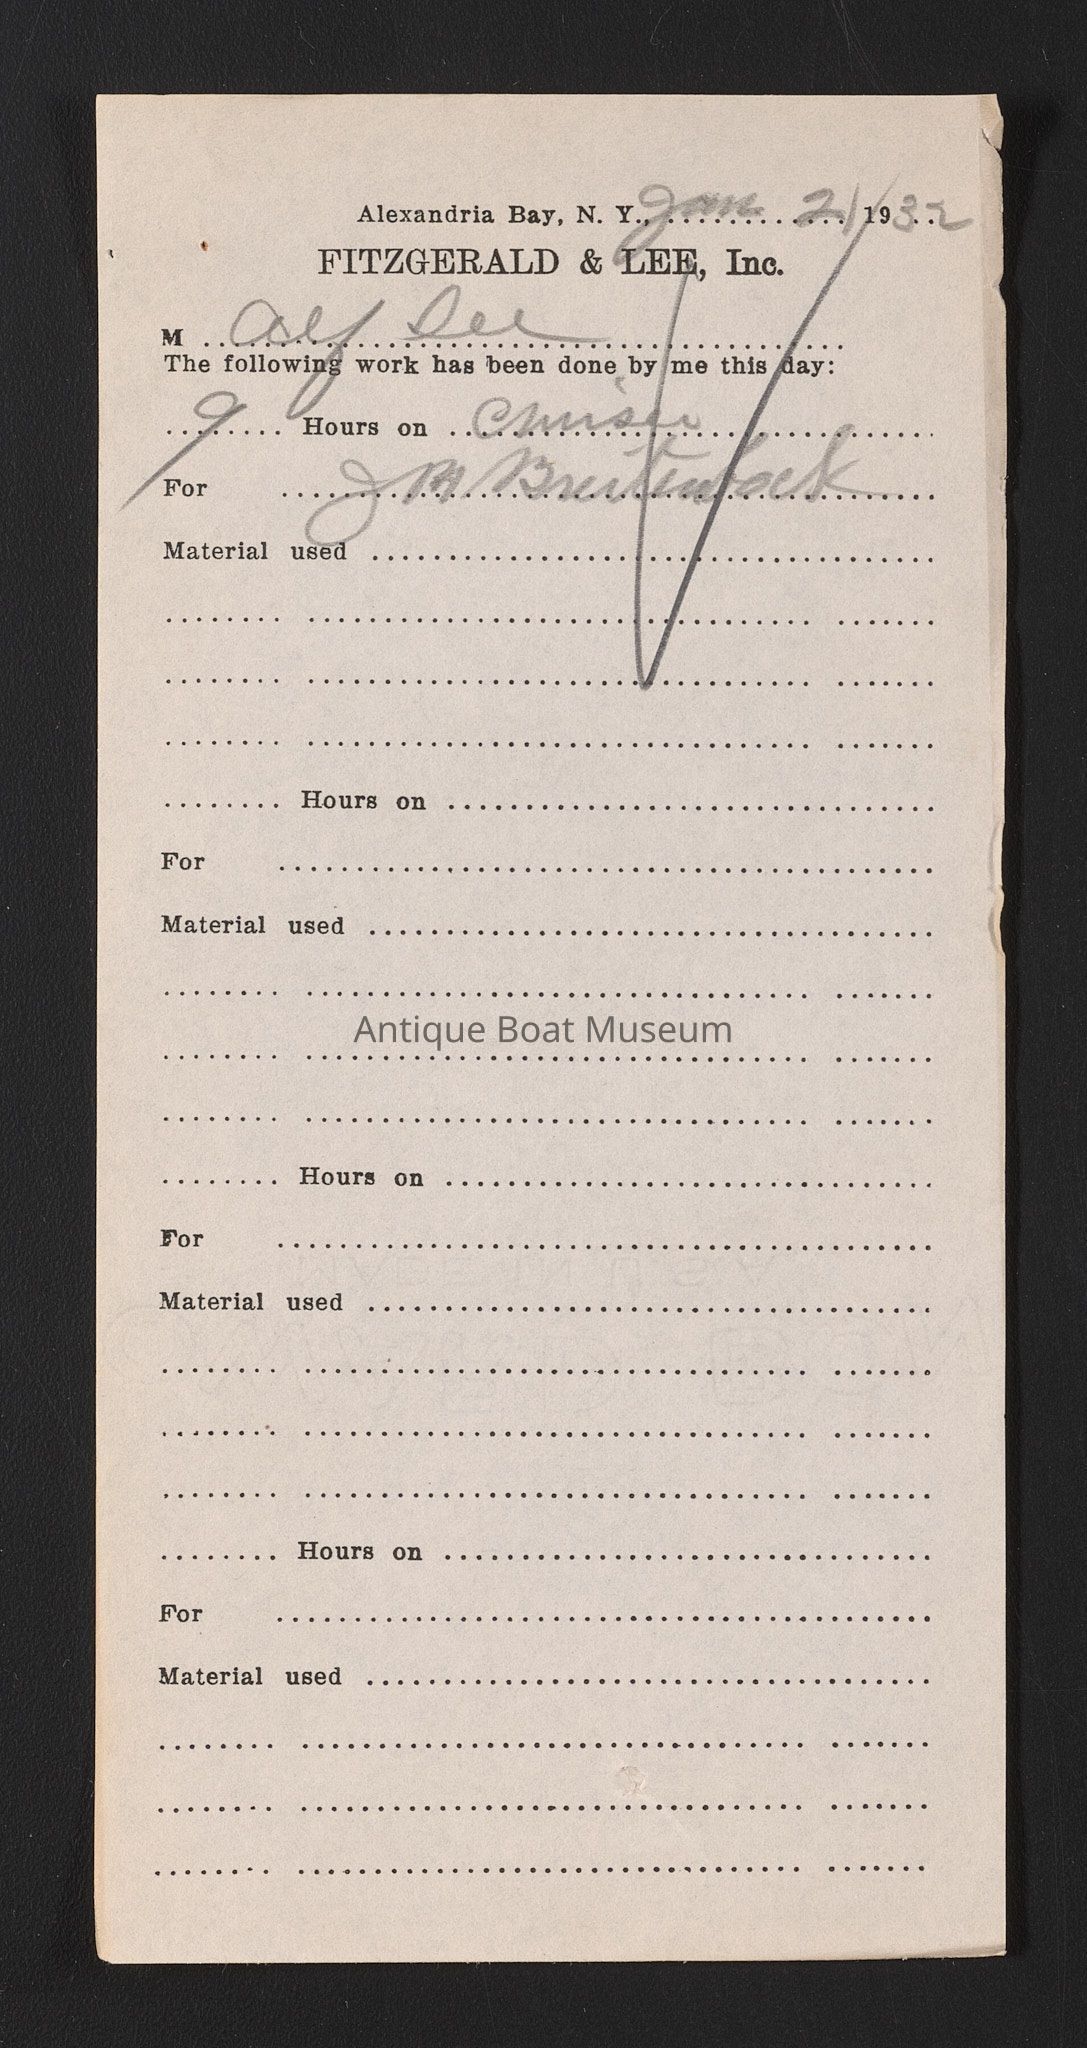 Alexandria Bay, N. Y., Jan 21 1932
FITZGERALD & LEE, Inc.
M Alf Lee
The following work has been done by me this day:
9 Hours on Cruiser
For J M Breitenbach
Material used
Hours on
For
Material used
Antique Boat Museum
Hours on
For
Material used
Hours on
For
Material used